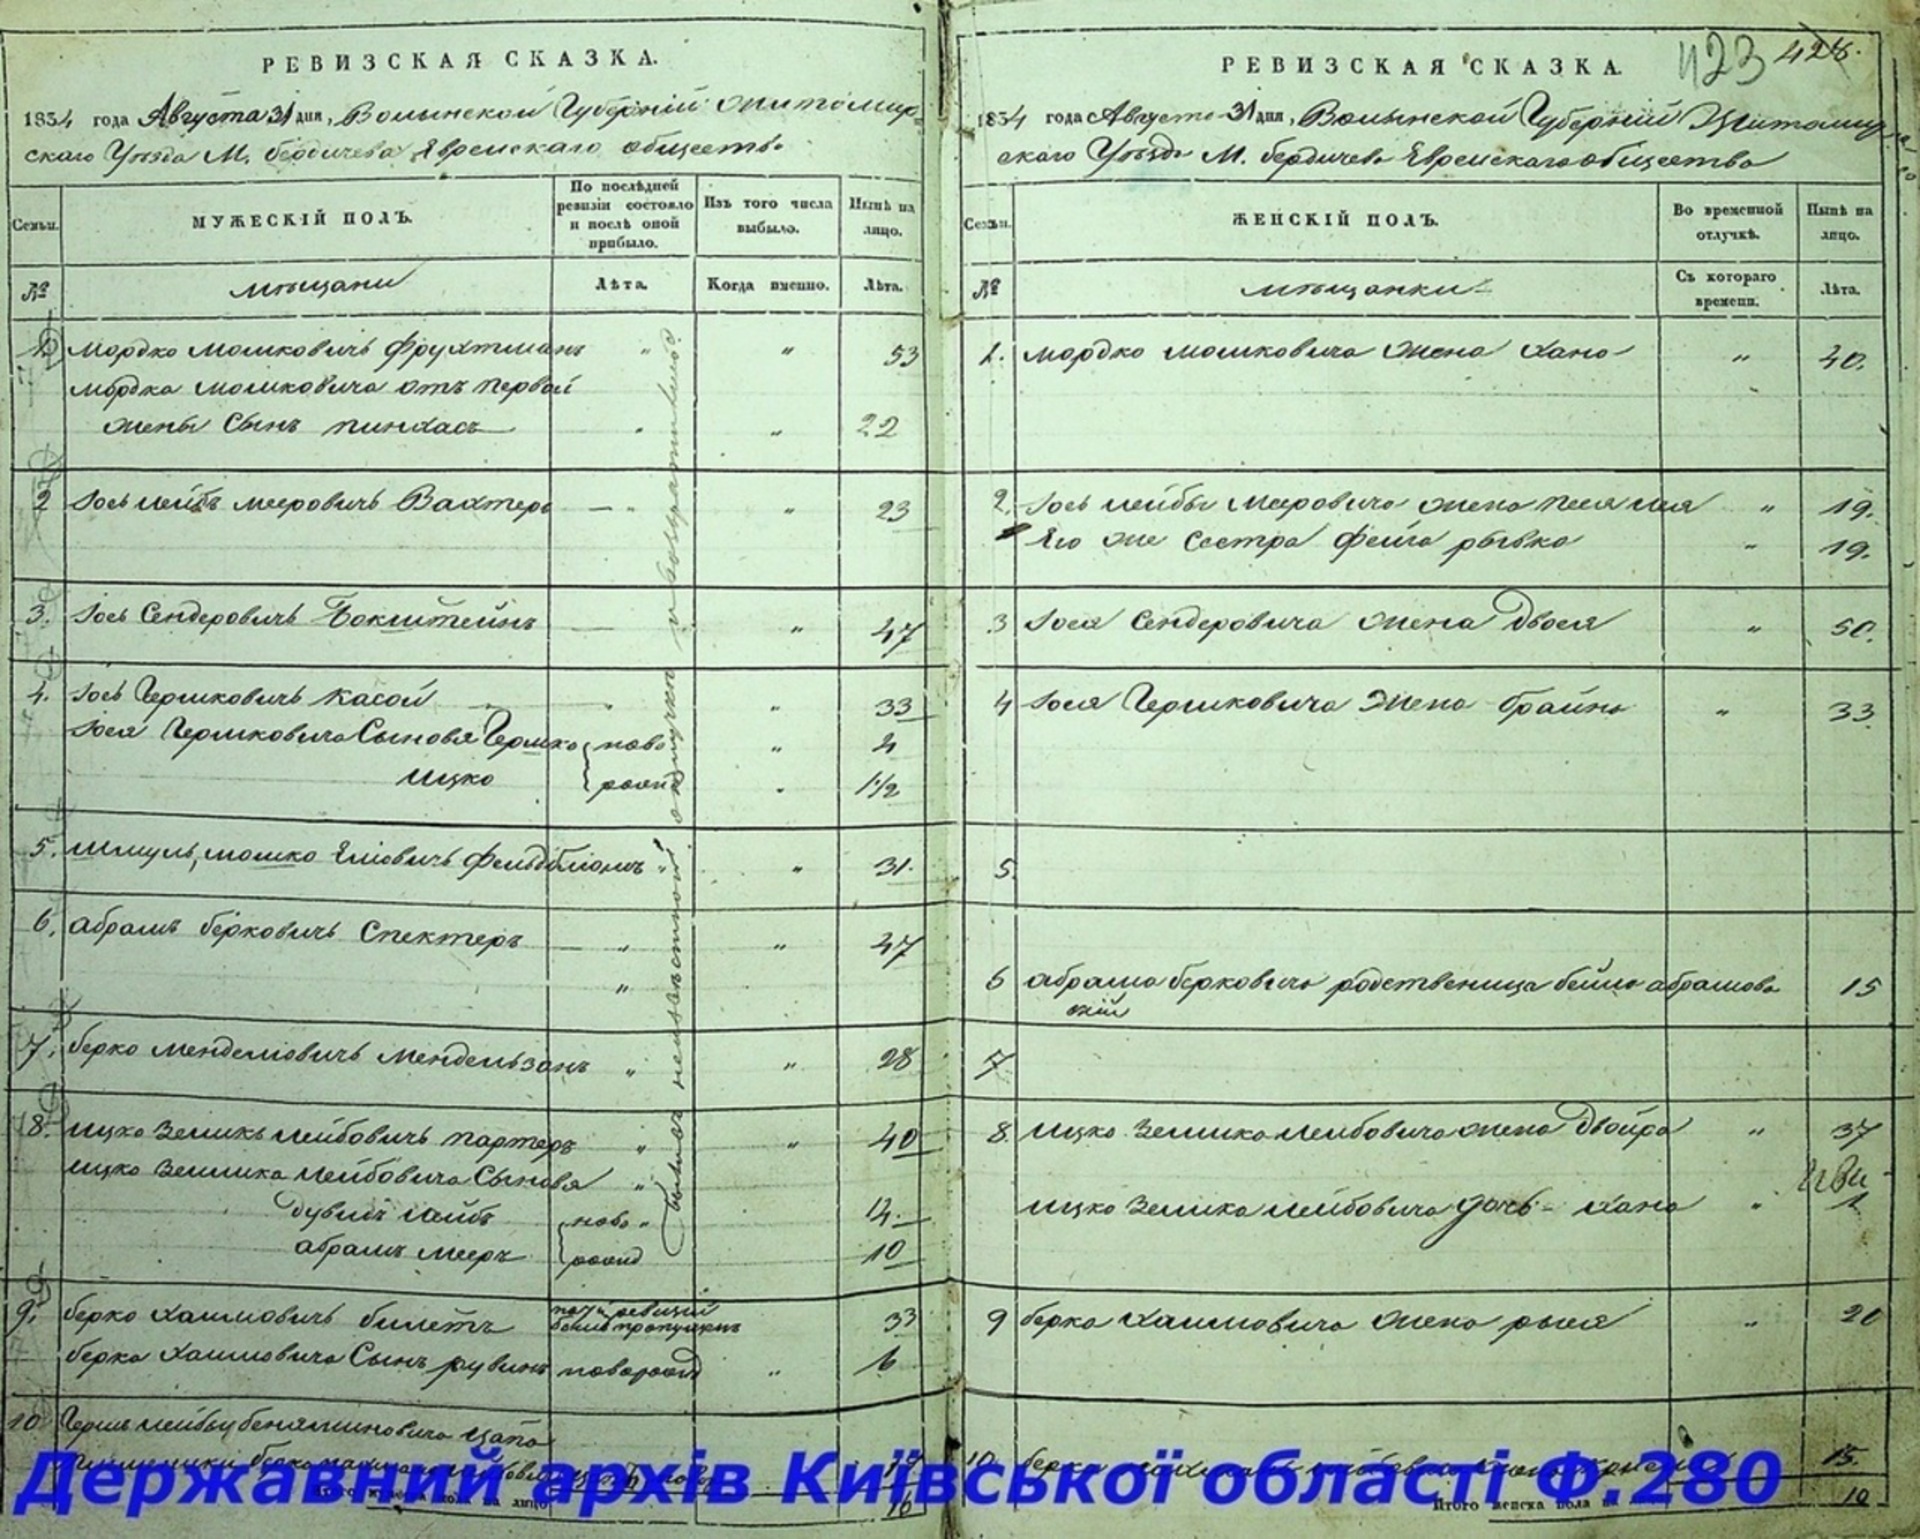 РЕВИЗСКАЯ СКАЗКА.
1834 года Августа 31 дня, Волынской Губерніи Житомир-
скаго Уѣзда М. Бердичева Еврейскаго общества
Семьи.
МУЖЕСКІЙ ПОЛЪ.
По послѣдней ревизіи состояло и послѣ оной прибыло.
Изъ того числа выбыло.
Нынѣ на лицо.
№
мѣщане
Лѣта.
Когда именно.
Лѣта.
1 Мордко Мошковичъ Фрухтманъ " " 53
Мордка Мошковича отъ первой
жены Сынъ Пинхасъ " " 22
2 Іось Лейбъ Мееровичъ Вахтеръ " " 23
3. Іось Сендеровичъ Бокштейнъ " 47
4. Іось Гершковичъ Касой " " 33
Іося Гершковича Сыновя Гершко ново "
Ицко рожд " 1 1/2
5. Шмуль Мошко Еліовичъ Фельдблюмъ " " 31.
6. Абрамъ Берковичъ Спекторъ " " 47
"
7. Берко Менделіовичъ Мендельзонъ " " 28
8. Ицко Зеликъ Лейбовичъ Партеръ " " 40
Ицко Зелика Лейбовича Сыновя "
Дувидъ Лейбъ ново " 12.
Абрамъ Мееръ рожд 10
были въ неизвѣстной отлучки и возвратились
9. Берко Хаимовичъ Билетъ 33
Берка Хаимовича Сынъ Рувинъ новорожд "
10 Герша Лейбы Беняминовича Цапа
Итого мужеска пола на лицо 16
РЕВИЗСКАЯ СКАЗКА.
423 428.
1834 года Августа 31 дня, Волынской Губерніи Житомир
скаго Уѣзда М. Бердичева Еврейскаго общества
Семьи.
ЖЕНСКІЙ ПОЛЪ.
Во временной отлучкѣ.
Нынѣ на лицо.
№
мѣщанки
Съ котораго времени.
Лѣта.
1. Мордко Мошковича жена Хана " 40.
2. Іось Лейбы Мееровича жена Песя Лея " 19.
Его же Сестра Фейга Рывка " 19.
3 Іося Сендеровича жена Двося " 50.
4 Іося Гершковича жена Брайна " 33
5.
6 Абрама Берковича родственица Бейла Абрамова
15
7
8. Ицко Зелика Лейбовича жена Двойра " 37
Ицко Зелика Лейбовича дочь Хана " 1
9 Берка Хаимовича жена Рыся " 20
10. Берка 15.
Итого женска пола на 10
Державний архів Київської області Ф.280